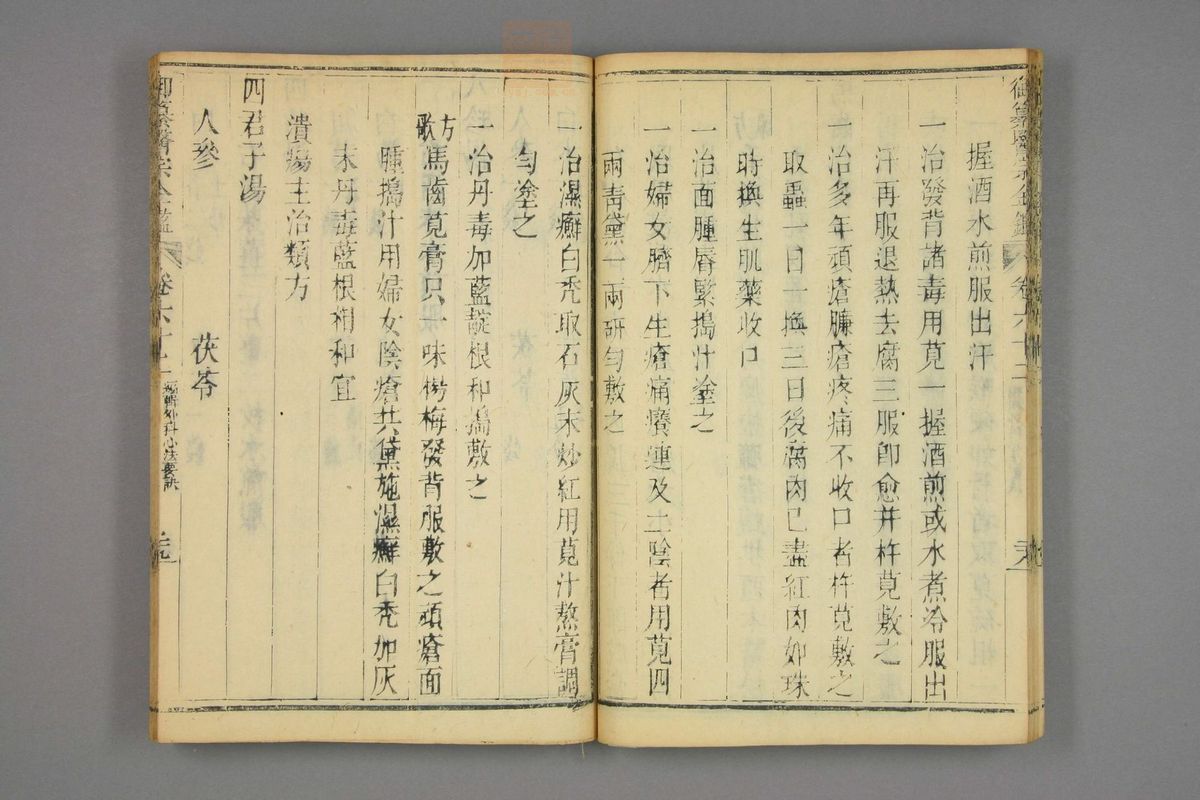 握酒水煎服出汗
一治發背諸毒用莧一握酒煎或水煮冷服出
汗再服退熱去腐三服卽愈并杵莧敷之
一治多年頑瘡臁瘡疼痛不收口者杵莧敷之
取蟲一日一換三日後腐肉已盡紅肉如珠
時換生肌藥收口
一治面腫唇緊搗汁塗之
一治婦女臍下生瘡痛癢連及二陰者用莧四
兩青黛一兩研勻敷之
一治濕癬白禿取石灰末炒紅用莧汁熬膏調
勻塗之
一治丹毒加藍靛根和搗敷之
方歌 馬齒莧膏只一味楊梅發背服敷之頑瘡面
腫搗汁用婦女陰瘡共黛施濕癬白禿加灰
末丹毒藍根相和宜
潰瘍主治類方
四君子湯
人參 茯苓
御纂醫宗金鑑 卷六十二 編輯外科心法要訣